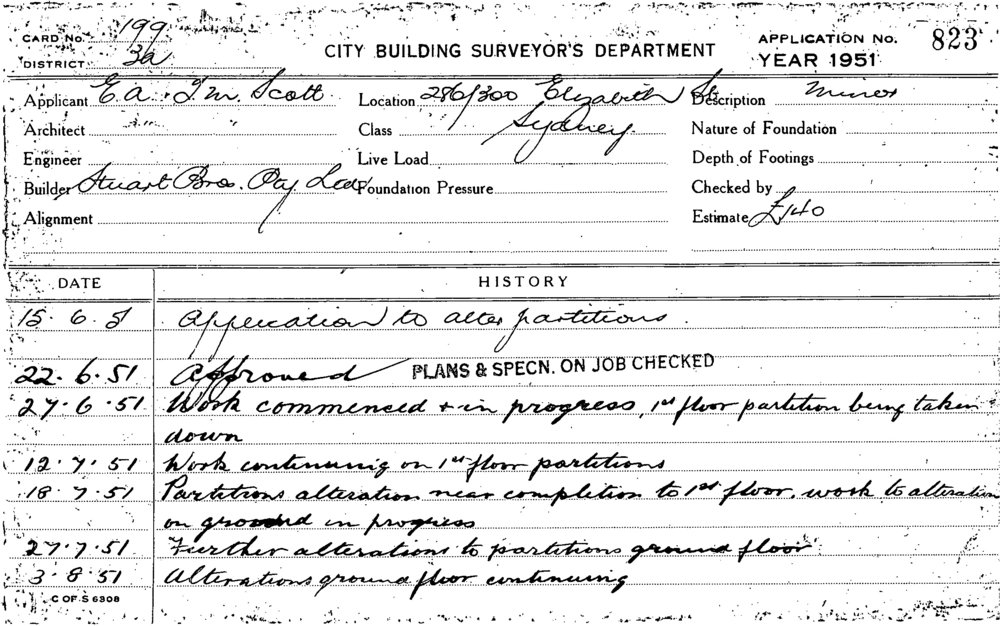 CARD No. 199
DISTRICT 3a
CITY BUILDING SURVEYOR'S DEPARTMENT
APPLICATION No. 823
YEAR 1951
Applicant E. a. T. M. Scott
Location 286/300 Elizabeth St.
Description Minor
Architect
Class Sydney.
Nature of Foundation
Engineer
Live Load
Depth of Footings
Builder Stuart Bros. Pty Ltd
Foundation Pressure
Checked by
Alignment
Estimate £140
DATE
HISTORY
15. 6. 51 Application to alter partitions.
22. 6. 51 Approved PLANS & SPECN. ON JOB CHECKED
27. 6. 51 Work commenced + in progress, 1st floor partition being taken
down
12. 7. 51 Work continuing on 1st floor partitions
18. 7. 51 Partitions alteration near completion to 1st floor. work to alteration
on ground in progress
27. 7. 51 Further alterations to partitions ground floor
3. 8. 51 Alterations ground floor continuing
C OF S 6308